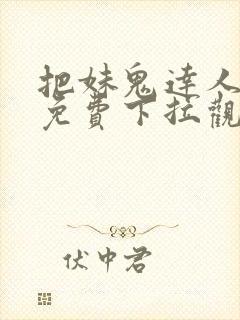 把妹鬼達人
免費下拉觀
伏中君